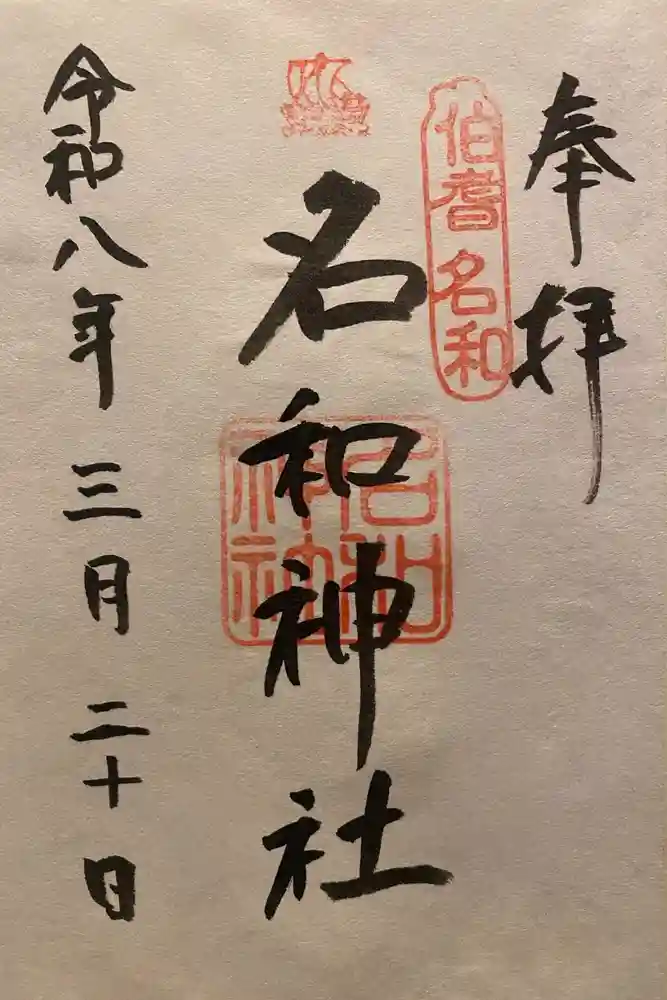 奉拝
伯耆名和
名和神社
名和神社
令和八年三月二十日